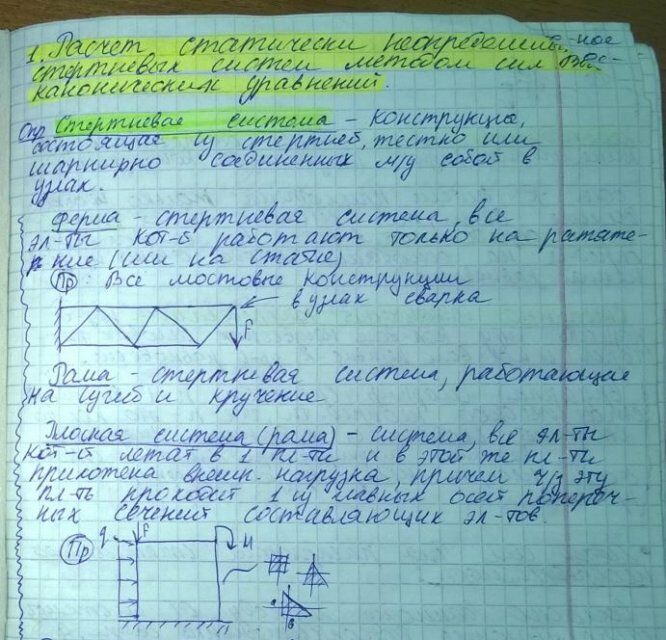 1. Расчет статически неопределимы
стержневых систем методом сил
каноническиих уравнений.
Опр Стержневая система – конструкция,
состоящая из стержней, жестко или
шарнирно соединенных м/у собой в
узлах.
Ферма – стержневая система, все
эл-ты кот-й работают только на растяже-
ние (или на сжатие)
Пр: Все мостовые конструкции
в узлах сварка
F
Рама – стержневая система, работающие
на изгиб и кручение
Плоская система (рама) – система, все эл-ты
кот-й лежат в 1 пл-ти и в этой же пл-ти
приложена внешн. нагрузка, причем ч/з эту
пл-ть проходит 1 из главных осей попереч-
ных сечений составляющих эл-тов.
Пр q F M